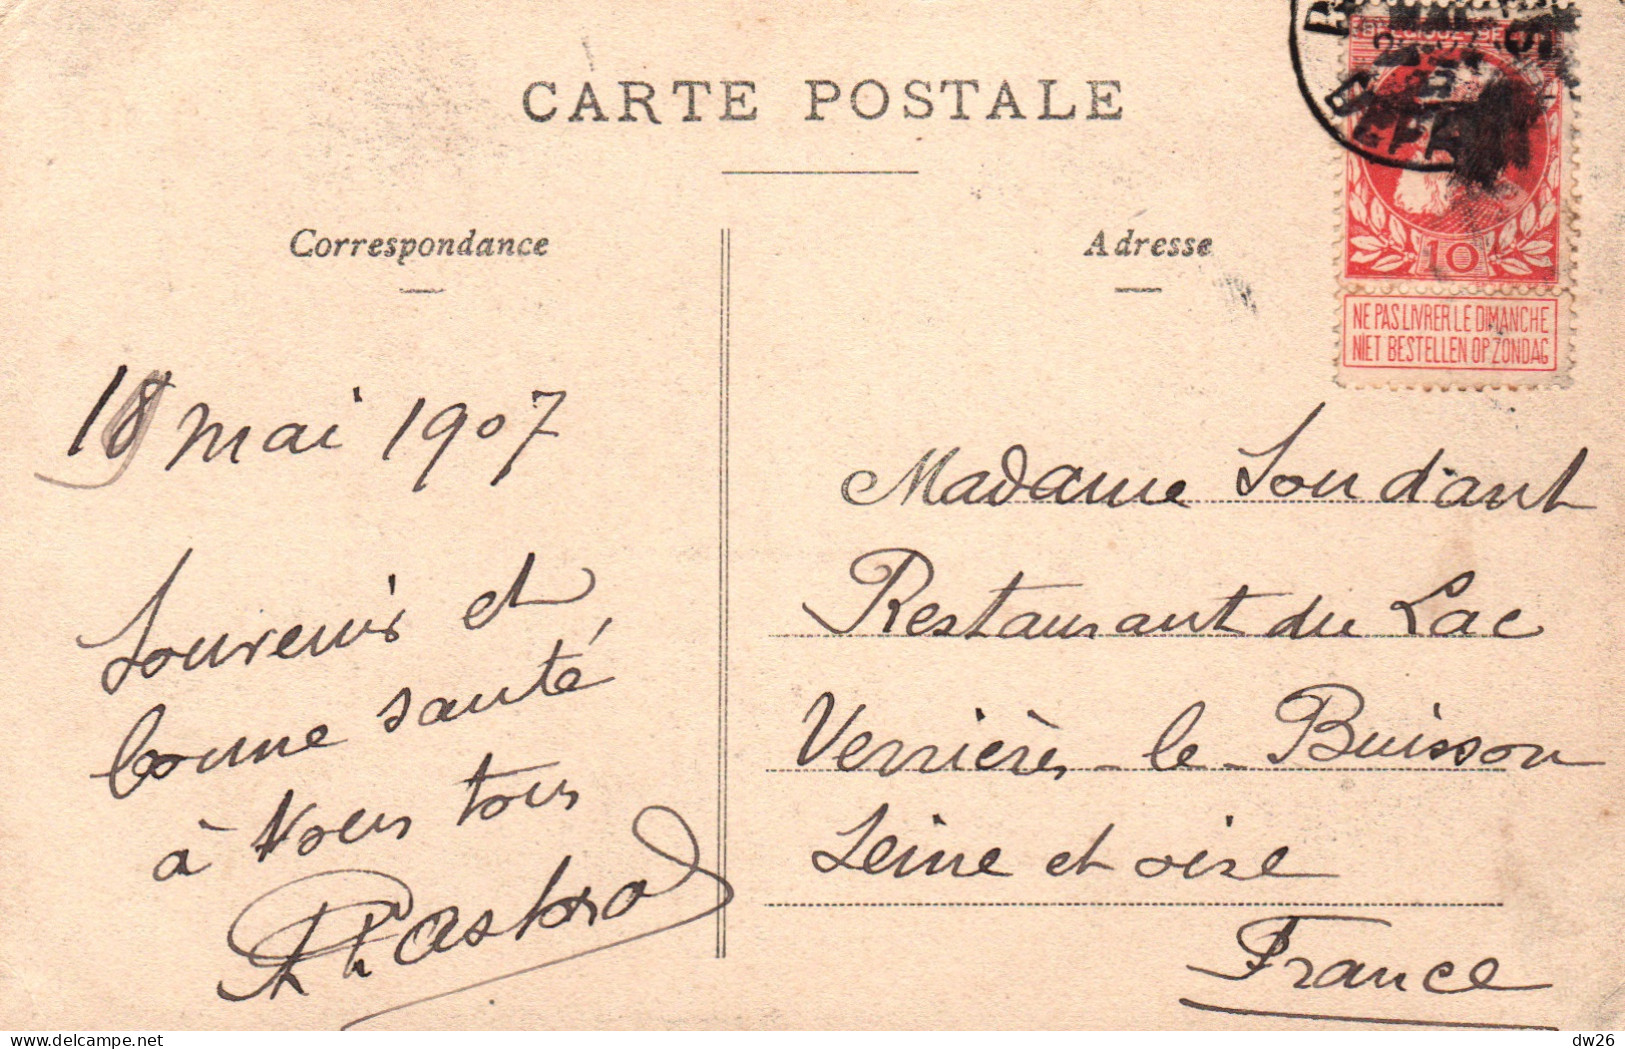 CARTE POSTALE
Correspondance
Adresse
BELGIQUE
10
NE PAS LIVRER LE DIMANCHE
NIET BESTELLEN OP ZONDAG
DEPA
18 mai 1907
Souvenir et
bonne santé,
à vous tous
Madame Soudant
Restaurant du Lac
Verrières-le-Buisson
Seine et oise
France
dw26